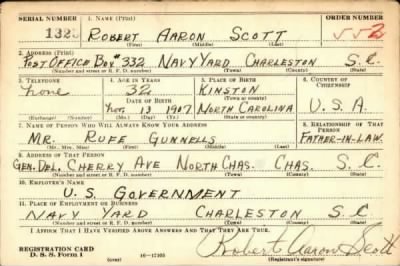 SERIAL NUMBER 1. NAME (Print) ORDER NUMBER
132 ROBERT AARON SCOTT 552
(First) (Middle) (Last)
2. ADDRESS (Print)
POST OFFICE BOX #332 NAVY YARD CHARLESTON S.C.
(Number and street or R. F. D. number) (Town) (County) (State)
3. TELEPHONE 4. AGE IN YEARS 5. PLACE OF BIRTH 6. COUNTRY OF CITIZENSHIP
none 32 KINSTON
DATE OF BIRTH (Town or county)
13 1907 NORTH CAROLINA U.S.A.
(Exchange) (Number) (Mo.) (Day) (Yr.) (State or country)
7. NAME OF PERSON WHO WILL ALWAYS KNOW YOUR ADDRESS 8. RELATIONSHIP OF THAT PERSON
MR. RUFF GUNNELLS FATHER-IN-LAW.
(Mr., Mrs., Miss) (First) (Middle) (Last)
9. ADDRESS OF THAT PERSON
GEN. DEL. CHERRY AVE NORTH CHAS. CHAS. S.C
(Number and street or R. F. D. number) (Town) (County) (State)
10. EMPLOYER'S NAME
U.S. GOVERNMENT
11. PLACE OF EMPLOYMENT OR BUSINESS
NAVY YARD CHARLESTON S.C
(Number and street or R. F. D. number) (Town) (County) (State)
I AFFIRM THAT I HAVE VERIFIED ABOVE ANSWERS AND THAT THEY ARE TRUE.
REGISTRATION CARD
D. S. S. Form 1 (over) 16—17105 Robert Aaron Scott
(Registrant's signature)